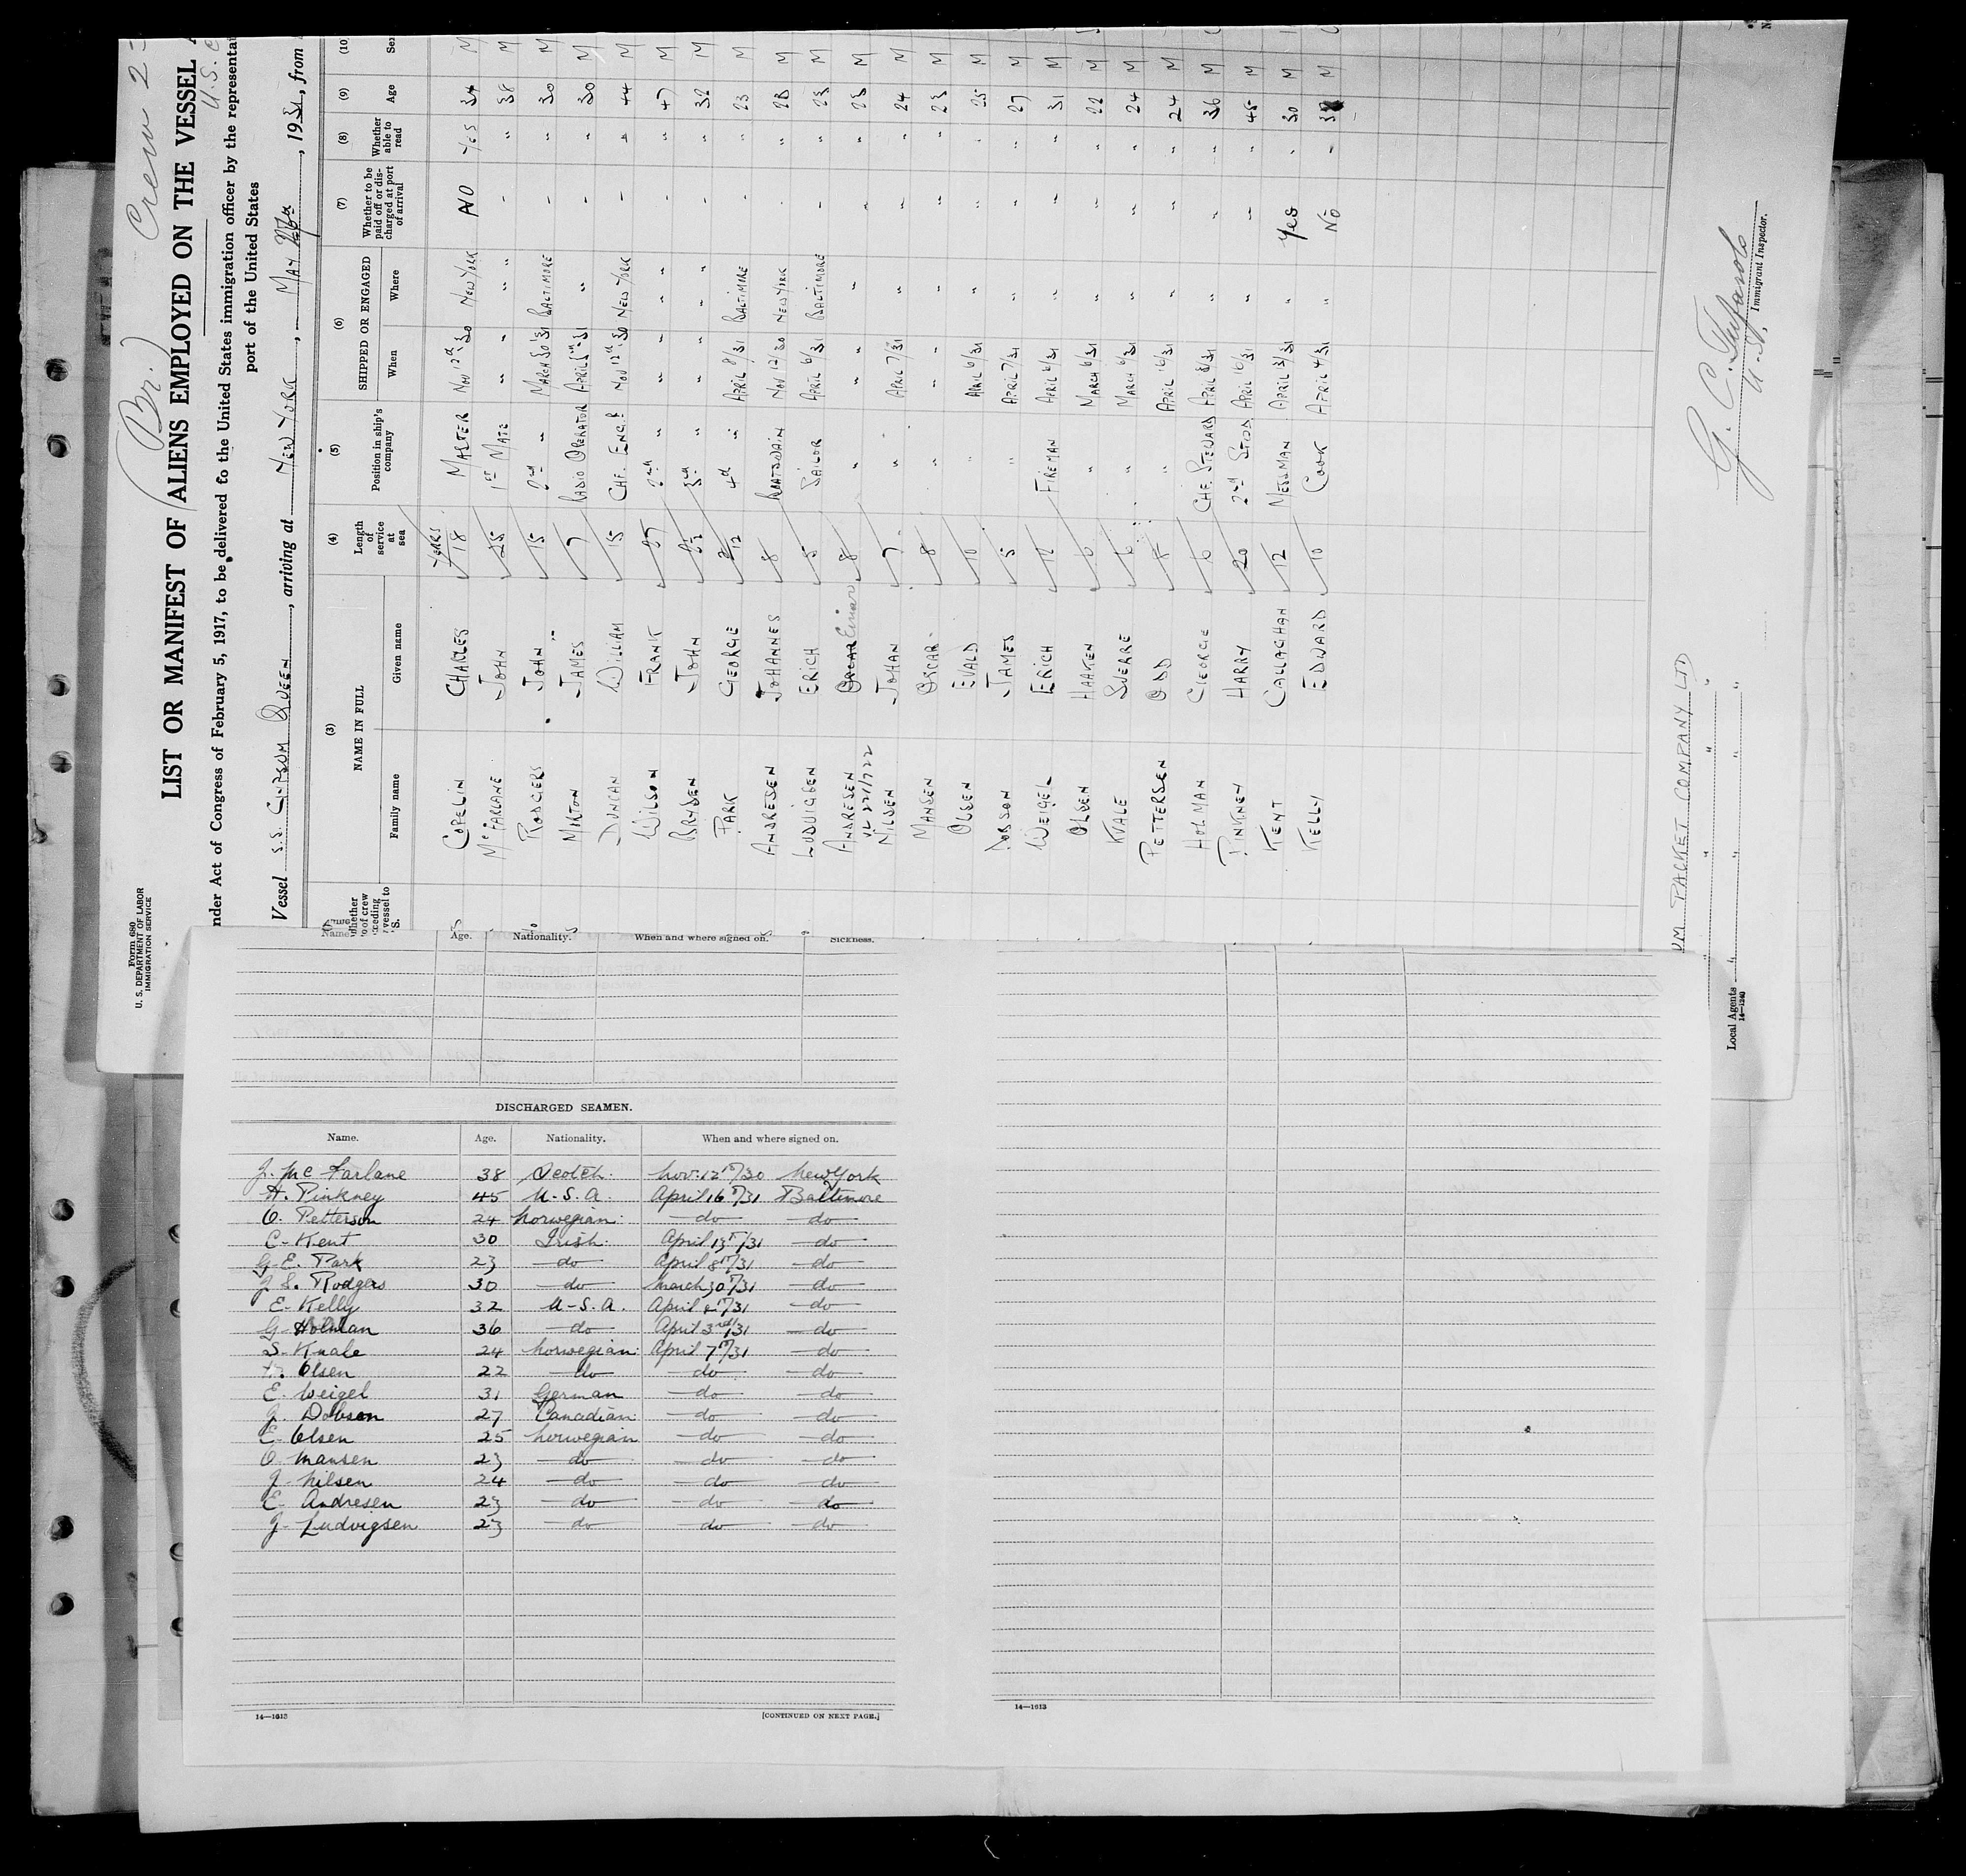 Form 680
U. S. DEPARTMENT OF LABOR
IMMIGRATION SERVICE
(Br.)
Crew 2
LIST OR MANIFEST OF ALIENS EMPLOYED ON THE VESSEL
U.S.
nder Act of Congress of February 5, 1917, to be delivered to the United States immigration officer by the representat
port of the United States
Vessel S.S. GYPSUM QUEEN, arriving at NEW YORK, MAY, 1931, from
(3) (4) (5) (6) (7) (8) (9) (10
NAME IN FULL
Family name Given name
Length of service at sea
Position in ship's company
SHIPPED OR ENGAGED
When Where
Whether to be paid off or discharged at port of arrival
Whether able to read
Age
Sex
YEARS
COPELIN CHARLES 18 MASTER NOV 12th 30 NEW YORK NO YES 34 M
McFARLANE JOHN 25 1st MATE " " " " - " 38 M
RODGERS JOHN 15 2nd " MARCH 30 31 BALTIMORE - " 30 M
MORTON JAMES 7 RADIO OPERATOR APRIL 31 " - " 30 M
DUNCAN WILLIAM 15 CHF. ENG.R NOV 12th 30 NEW YORK - " 44 M
WILSON FRANK 27 2nd " " " " " - " 47 M
BRYDEN JOHN 3rd " " " " " - " 32 M
PARK GEORGE 4th " APRIL 8/31 BALTIMORE - " 23 M
ANDRESEN JOHANNES 8 BOATSWAIN NOV 12/30 NEW YORK - " 28 M
LUDVIGSEN ERICH 5 SAILOR APRIL 6/31 BALTIMORE - " 23 M
ANDRESEN OSCAR Einar 8 " " " " " 23 M
NILSEN JOHAN 7 " APRIL 7/31 " " " 24 M
MANSEN OSCAR 8 " " " " " 23 M
OLSEN EVALD 10 " APRIL 6/31 " " " 25 M
DOBSON JAMES 5 " APRIL 7/31 " " " 27 M
WEIGEL ERICH 12 FIREMAN APRIL 6/31 " " " 31 M
OLSEN HAAKEN 6 " MARCH 6/31 " " " 22 M
KVALE SVERRE 6 " MARCH 6/31 " " " 24 M
PETTERSEN ODD 8 " APRIL 16/31 " " " 24 M
HOLMAN GEORGE 6 CHF. STEWARD APRIL 3/31 " " " 36 M
PINKNEY HARRY 20 2nd STWD APRIL 16/31 " " " 45 M
KENT CALLAGHAN 12 MESSMAN APRIL 3/31 " Yes " 30 M
KELLY EDWARD 10 COOK APRIL 4/31 " No " 32 M
UM PACKET COMPANY LTD
Local Agents
14—1240
G. C.
Immigrant Inspector.
Name. Age. Nationality. When and where signed on. Sickness.
DISCHARGED SEAMEN.
Name. Age. Nationality. When and where signed on.
J. Mc Farlane 38 Scotch. Nov. 12th/30 New York
H. Pinkney 45 U.S.A. April 16th/31 Baltimore
O. Petterson 24 Norwegian. —do— —do—
C. Kent 30 Irish. April 13th/31 —do—
G. E. Park 23 —do— April 8th/31 —do—
J. S. Rodgers 30 —do— March 30th/31 —do—
E. Kelly 32 U.S.A. April 4th/31 —do—
G. Holman 36 —do— April 3rd/31 —do—
S. Kvale 24 Norwegian. April 7th/31 —do—
H. Olsen 22 —do— —do— —do—
E. Weigel 31 German —do— —do—
J. Dobson 27 Canadian. —do— —do—
E. Olsen 25 Norwegian —do— —do—
O. Mansen 23 —do— —do— —do—
J. Nilsen 24 —do— —do— —do—
E. Andresen 23 —do— —do— —do—
J. Ludvigsen 23 —do— —do— —do—
14—1613
[CONTINUED ON NEXT PAGE.]
14—1613